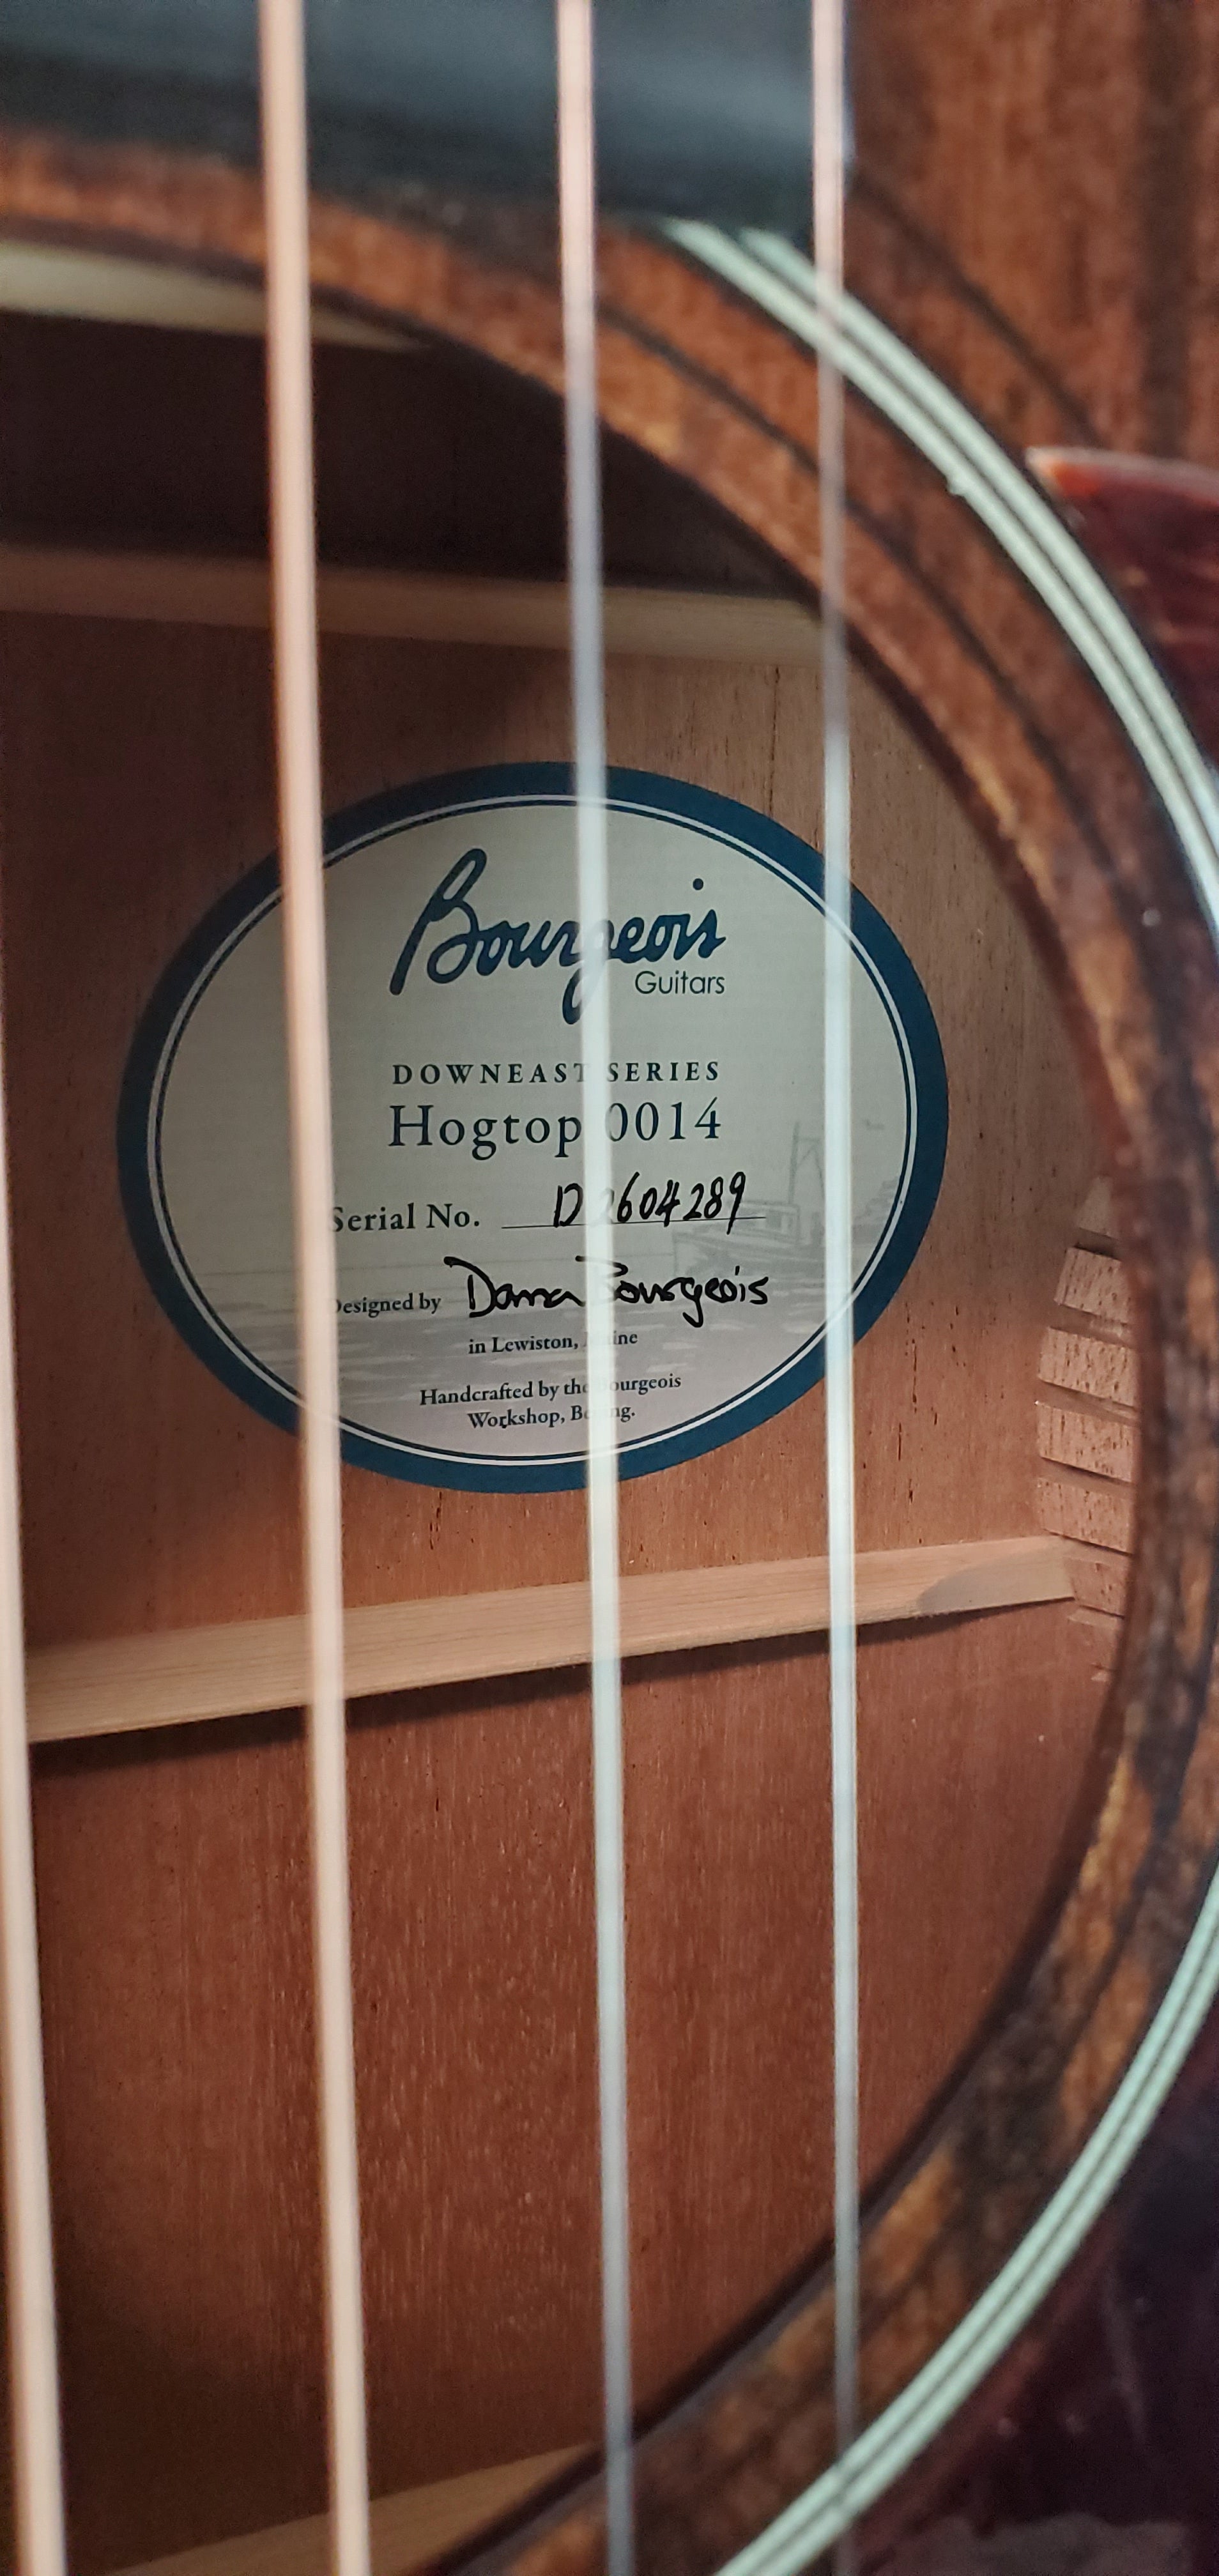 Bourgeois
Guitars
DOWNEAST SERIES
Hogtop 0014
Serial No.
Designed by Dana Bourgeois
in Lewiston, Maine
Handcrafted by the Bourgeois
Workshop,